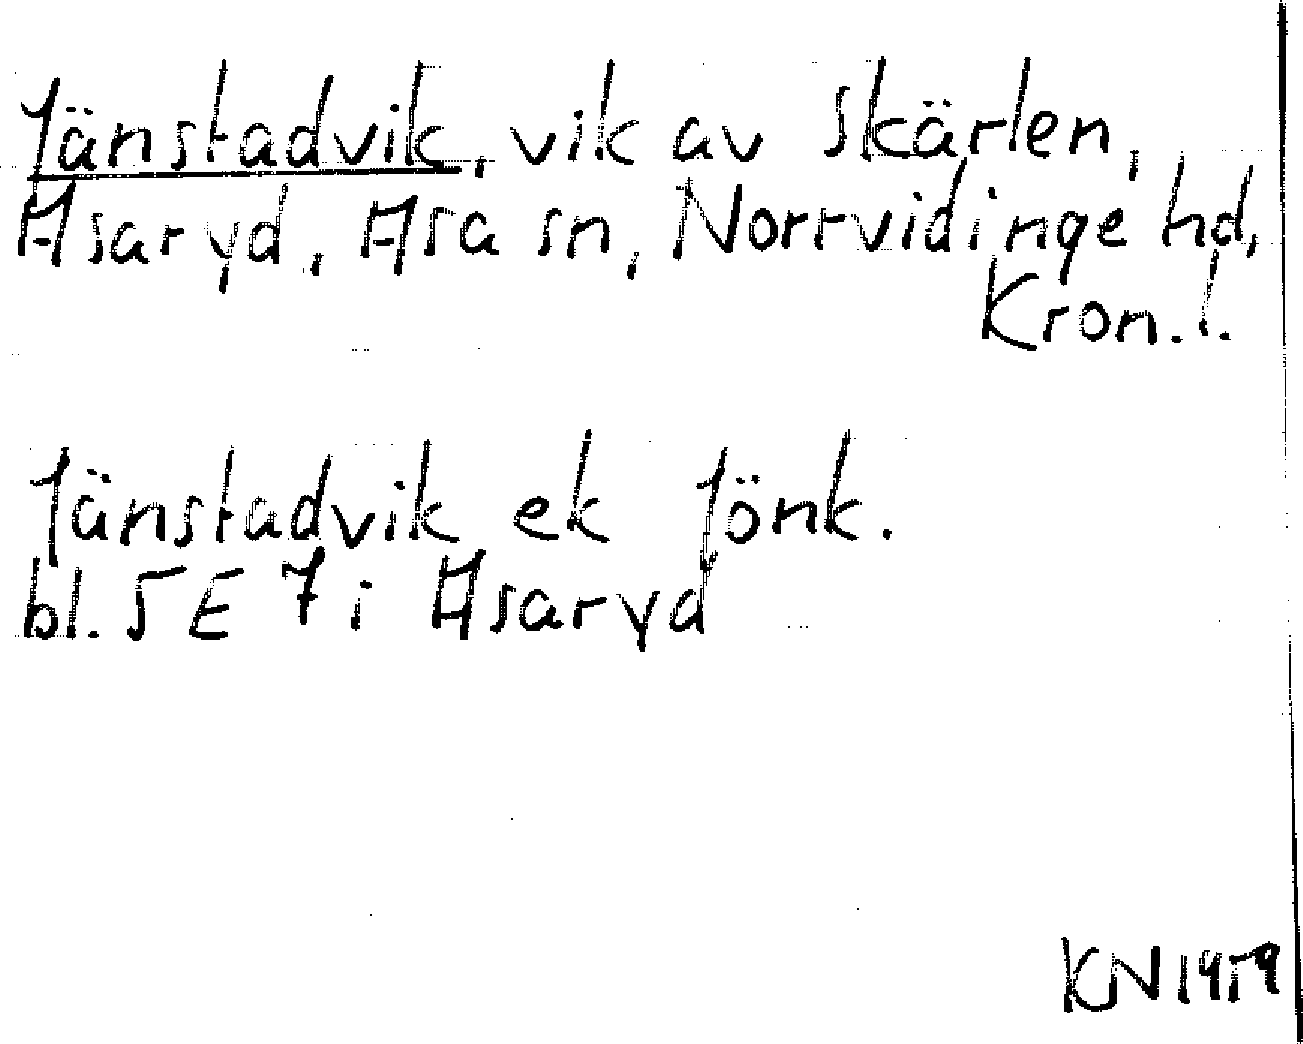 Jänstadvik, vik av Skärlen,
Asaryd, Asa sn, Norrvidinge hd,
Kron. l.
Jänstadvik ek Jönk.
bl. 5 E 7 i Asaryd
KN 1959